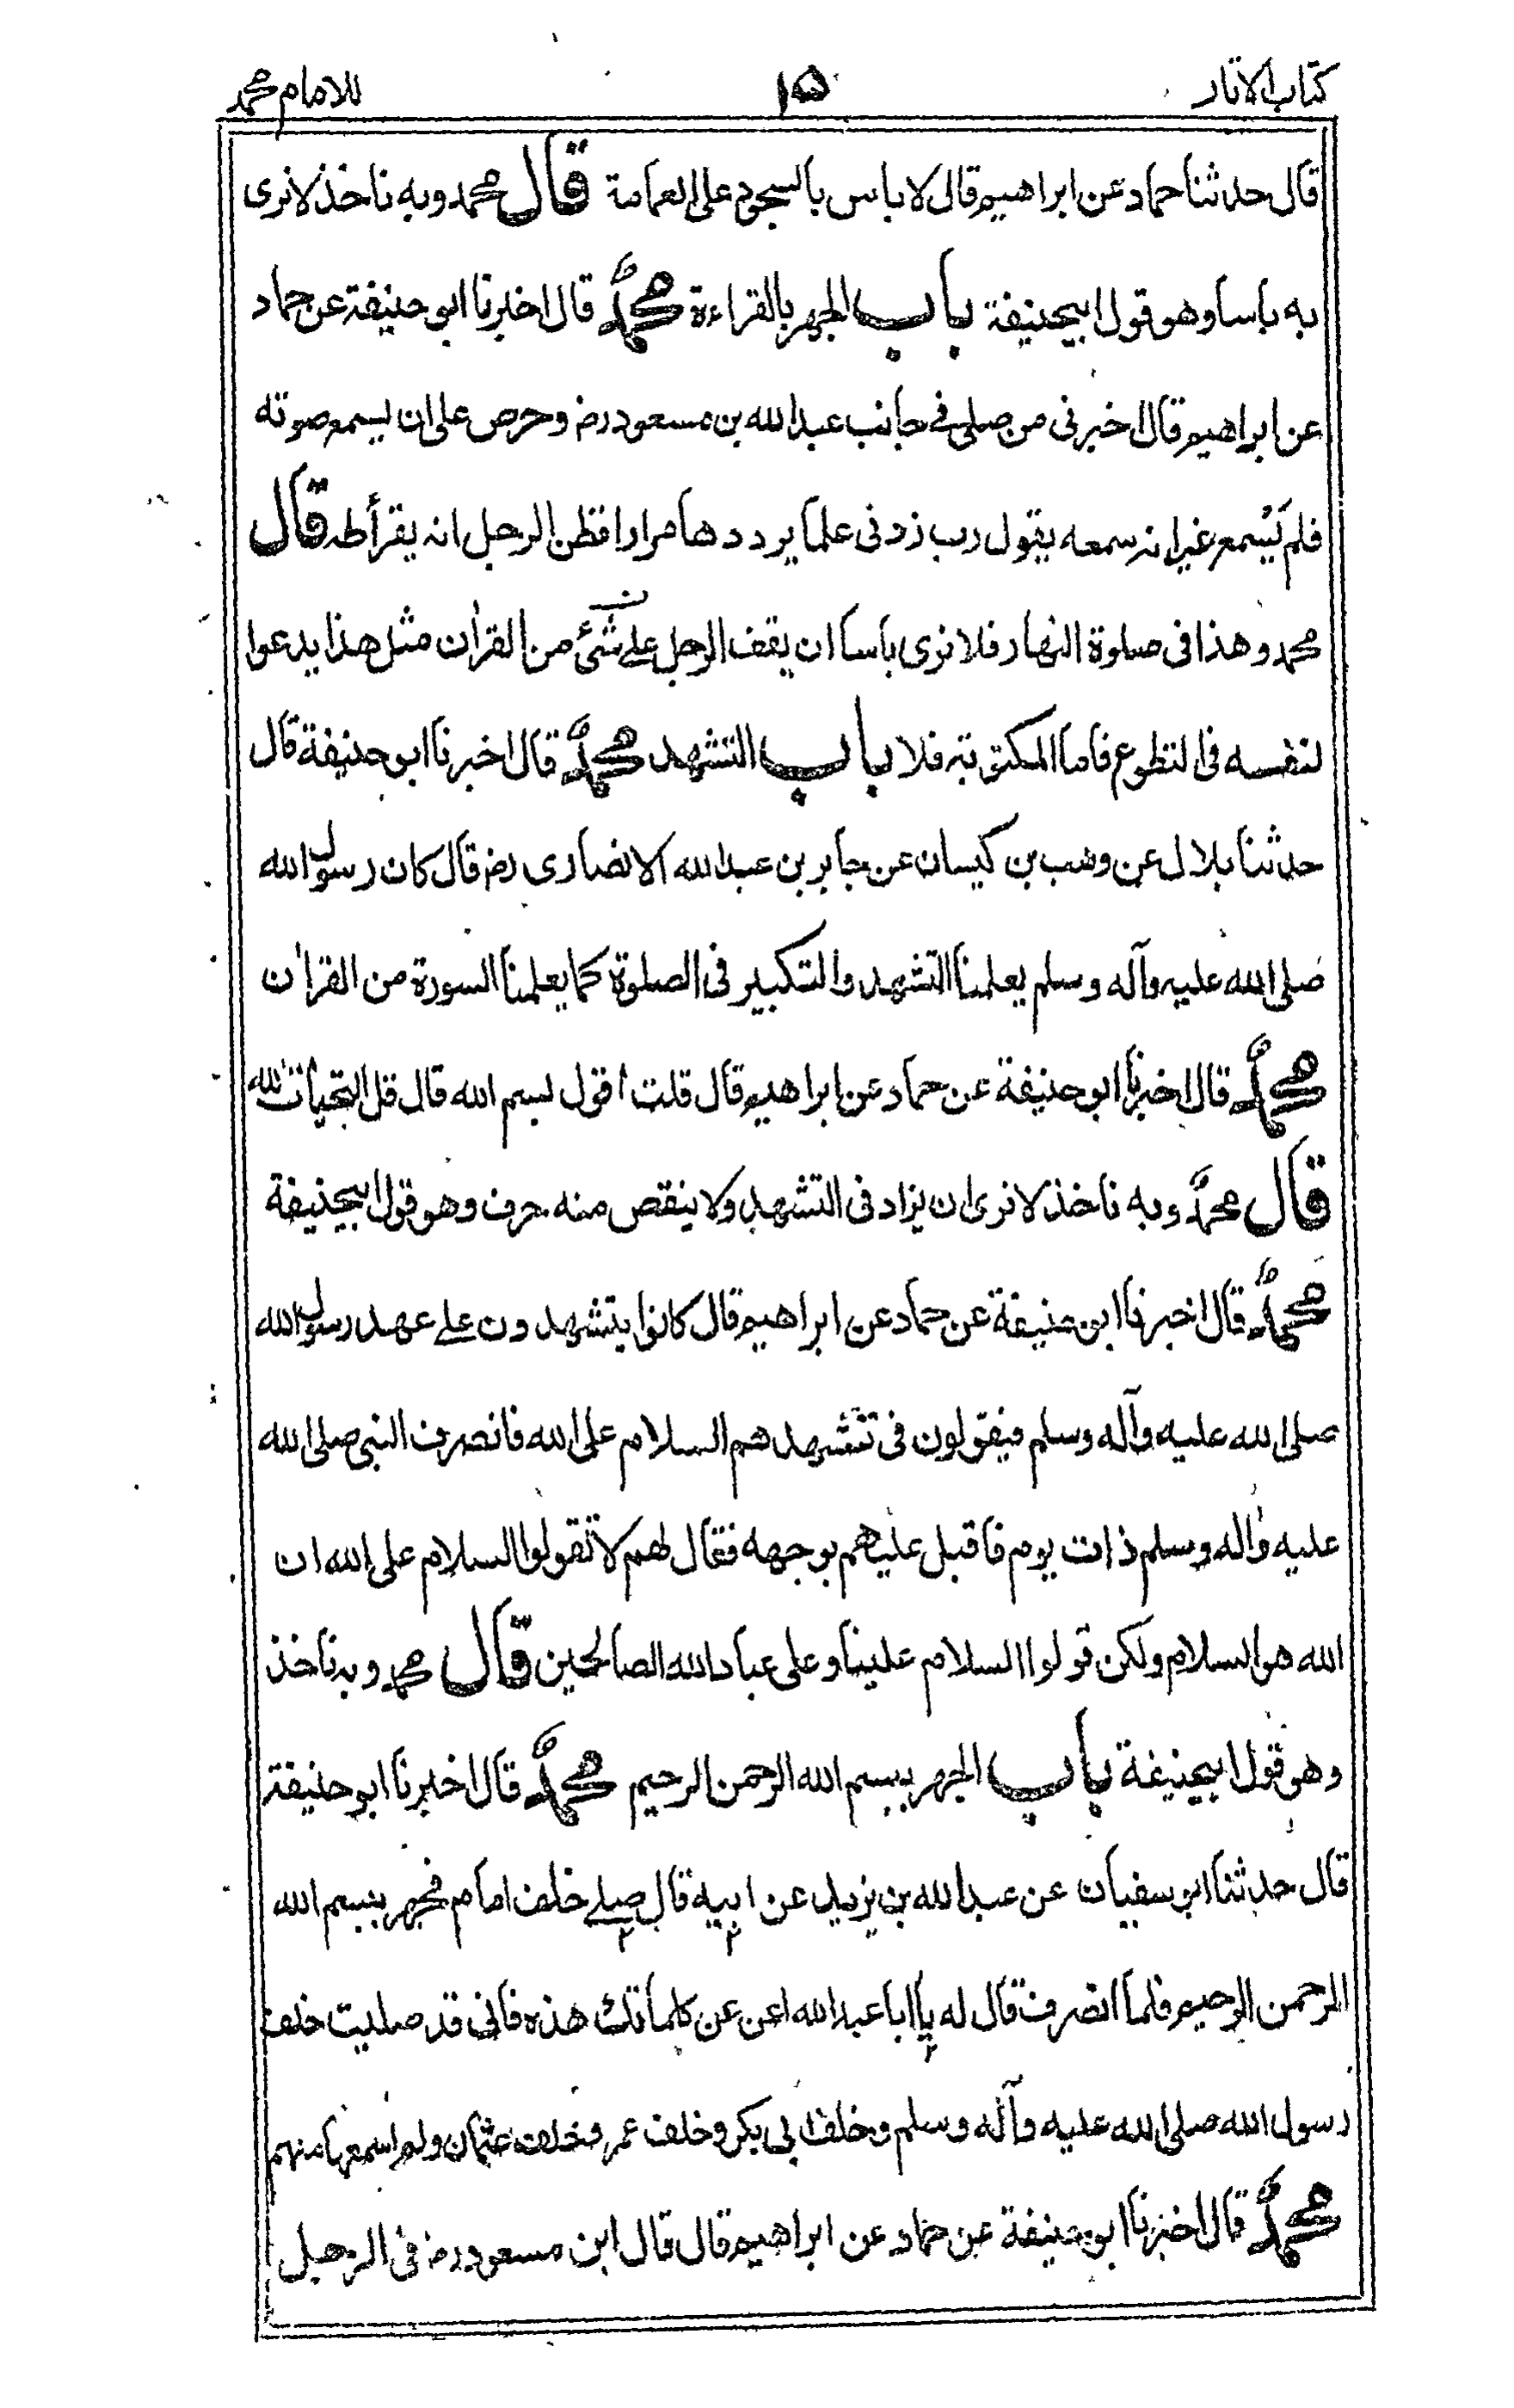 كتاب الاثار
١٥
للامام محمد
قال حدثنا حماد عن ابراهيم قال لا باس بالسجود على العمامة قال محمد وبه ناخذ لا نرى
به باسا وهو قول ابيحنيفة باب الجهر بالقراءة محمدٌ قال اخبرنا ابو حنيفة عن حماد
عن ابراهيم قال اخبرنى من صلى في جانب عبد الله بن مسعود رض وحرص على ان يسمع صوته
فلم يسمع غير انه سمعه يقول رب زدنى علما يرددها مرارا فظن الرجل انه يقرأ طه قال
محمد وهذا فى صلوة النهار فلا نرى باسا ان يقف الرجل على شئ من القراٰن مثل هذا يدعوا
لنفسه فى التطوع فاما المكتوبة فلا باب التشهد محمدٌ قال اخبرنا ابو حنيفة قال
حدثنا بلال عن وهب بن كيسان عن جابر بن عبد الله الانصارى رض قال كان رسول الله
صلى الله عليه وآله وسلم يعلمنا التشهد والتكبير فى الصلوة كما يعلمنا السورة من القراٰن
محمدٌ قال اخبرنا ابو حنيفة عن حماد عن ابراهيم قال قلت اقول بسم الله قال قل التحيات لله
قال محمدٌ وبه ناخذ لا نرى ان يزاد فى التشهد ولا ينقص منه حرف وهو قول ابيحنيفة
محمدٌ قال اخبرنا ابو حنيفة عن حماد عن ابراهيم قال كانوا يتشهدون على عهد رسول الله
صلى الله عليه وآله وسلم فيقولون فى تشهدهم السلام على الله فانصرف النبى صلى الله
عليه واٰله وسلم ذات يوم فاقبل عليهم بوجهه فقال لهم لا تقولوا السلام على الله ان
الله هو السلام ولكن قولوا السلام علينا وعلى عباد الله الصالحين قال محمد وبه ناخذ
وهو قول ابيحنيفة باب الجهر ببسم الله الرحمن الرحيم محمدٌ قال اخبرنا ابو حنيفة
قال حدثنا ابو سفيان عن عبد الله بن يزيد عن ابيه قال صلى خلف امام فجهر ببسم الله
الرحمن الرحيم فلما انصرف قال له يا ابا عبد الله اعن عن كلماتك هذه فانى قد صليت خلف
رسول الله صلى الله عليه وآله وسلم وخلف ابى بكر وخلف عمر وخلف عثمان ولم اسمعها منهم
محمدٌ قال اخبرنا ابو حنيفة عن حماد عن ابراهيم قال قال ابن مسعود رض فى الرجل